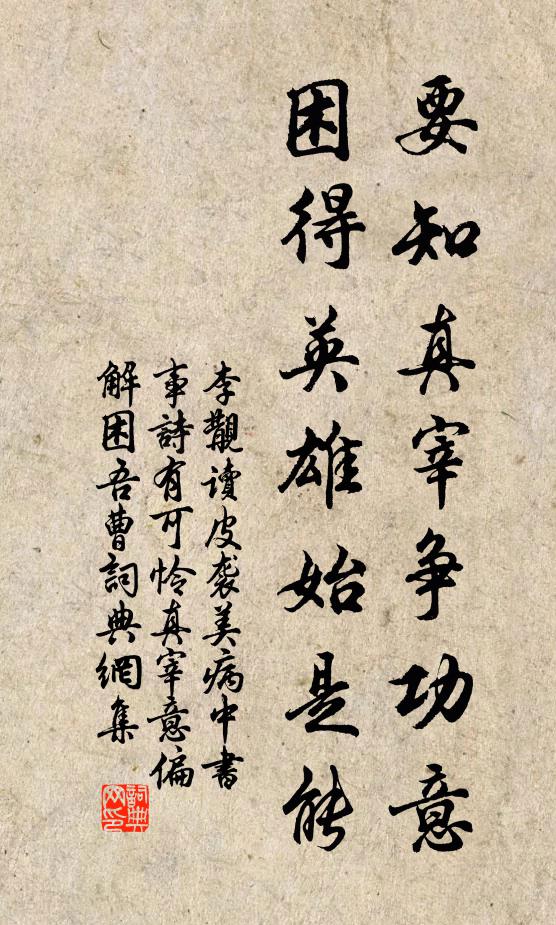 要知真宰争功意
困得英雄始是能
李觀讀皮袭美病中書
事詩有可怜真宰意偏
解困吾曹詞典網集
詞典
网印